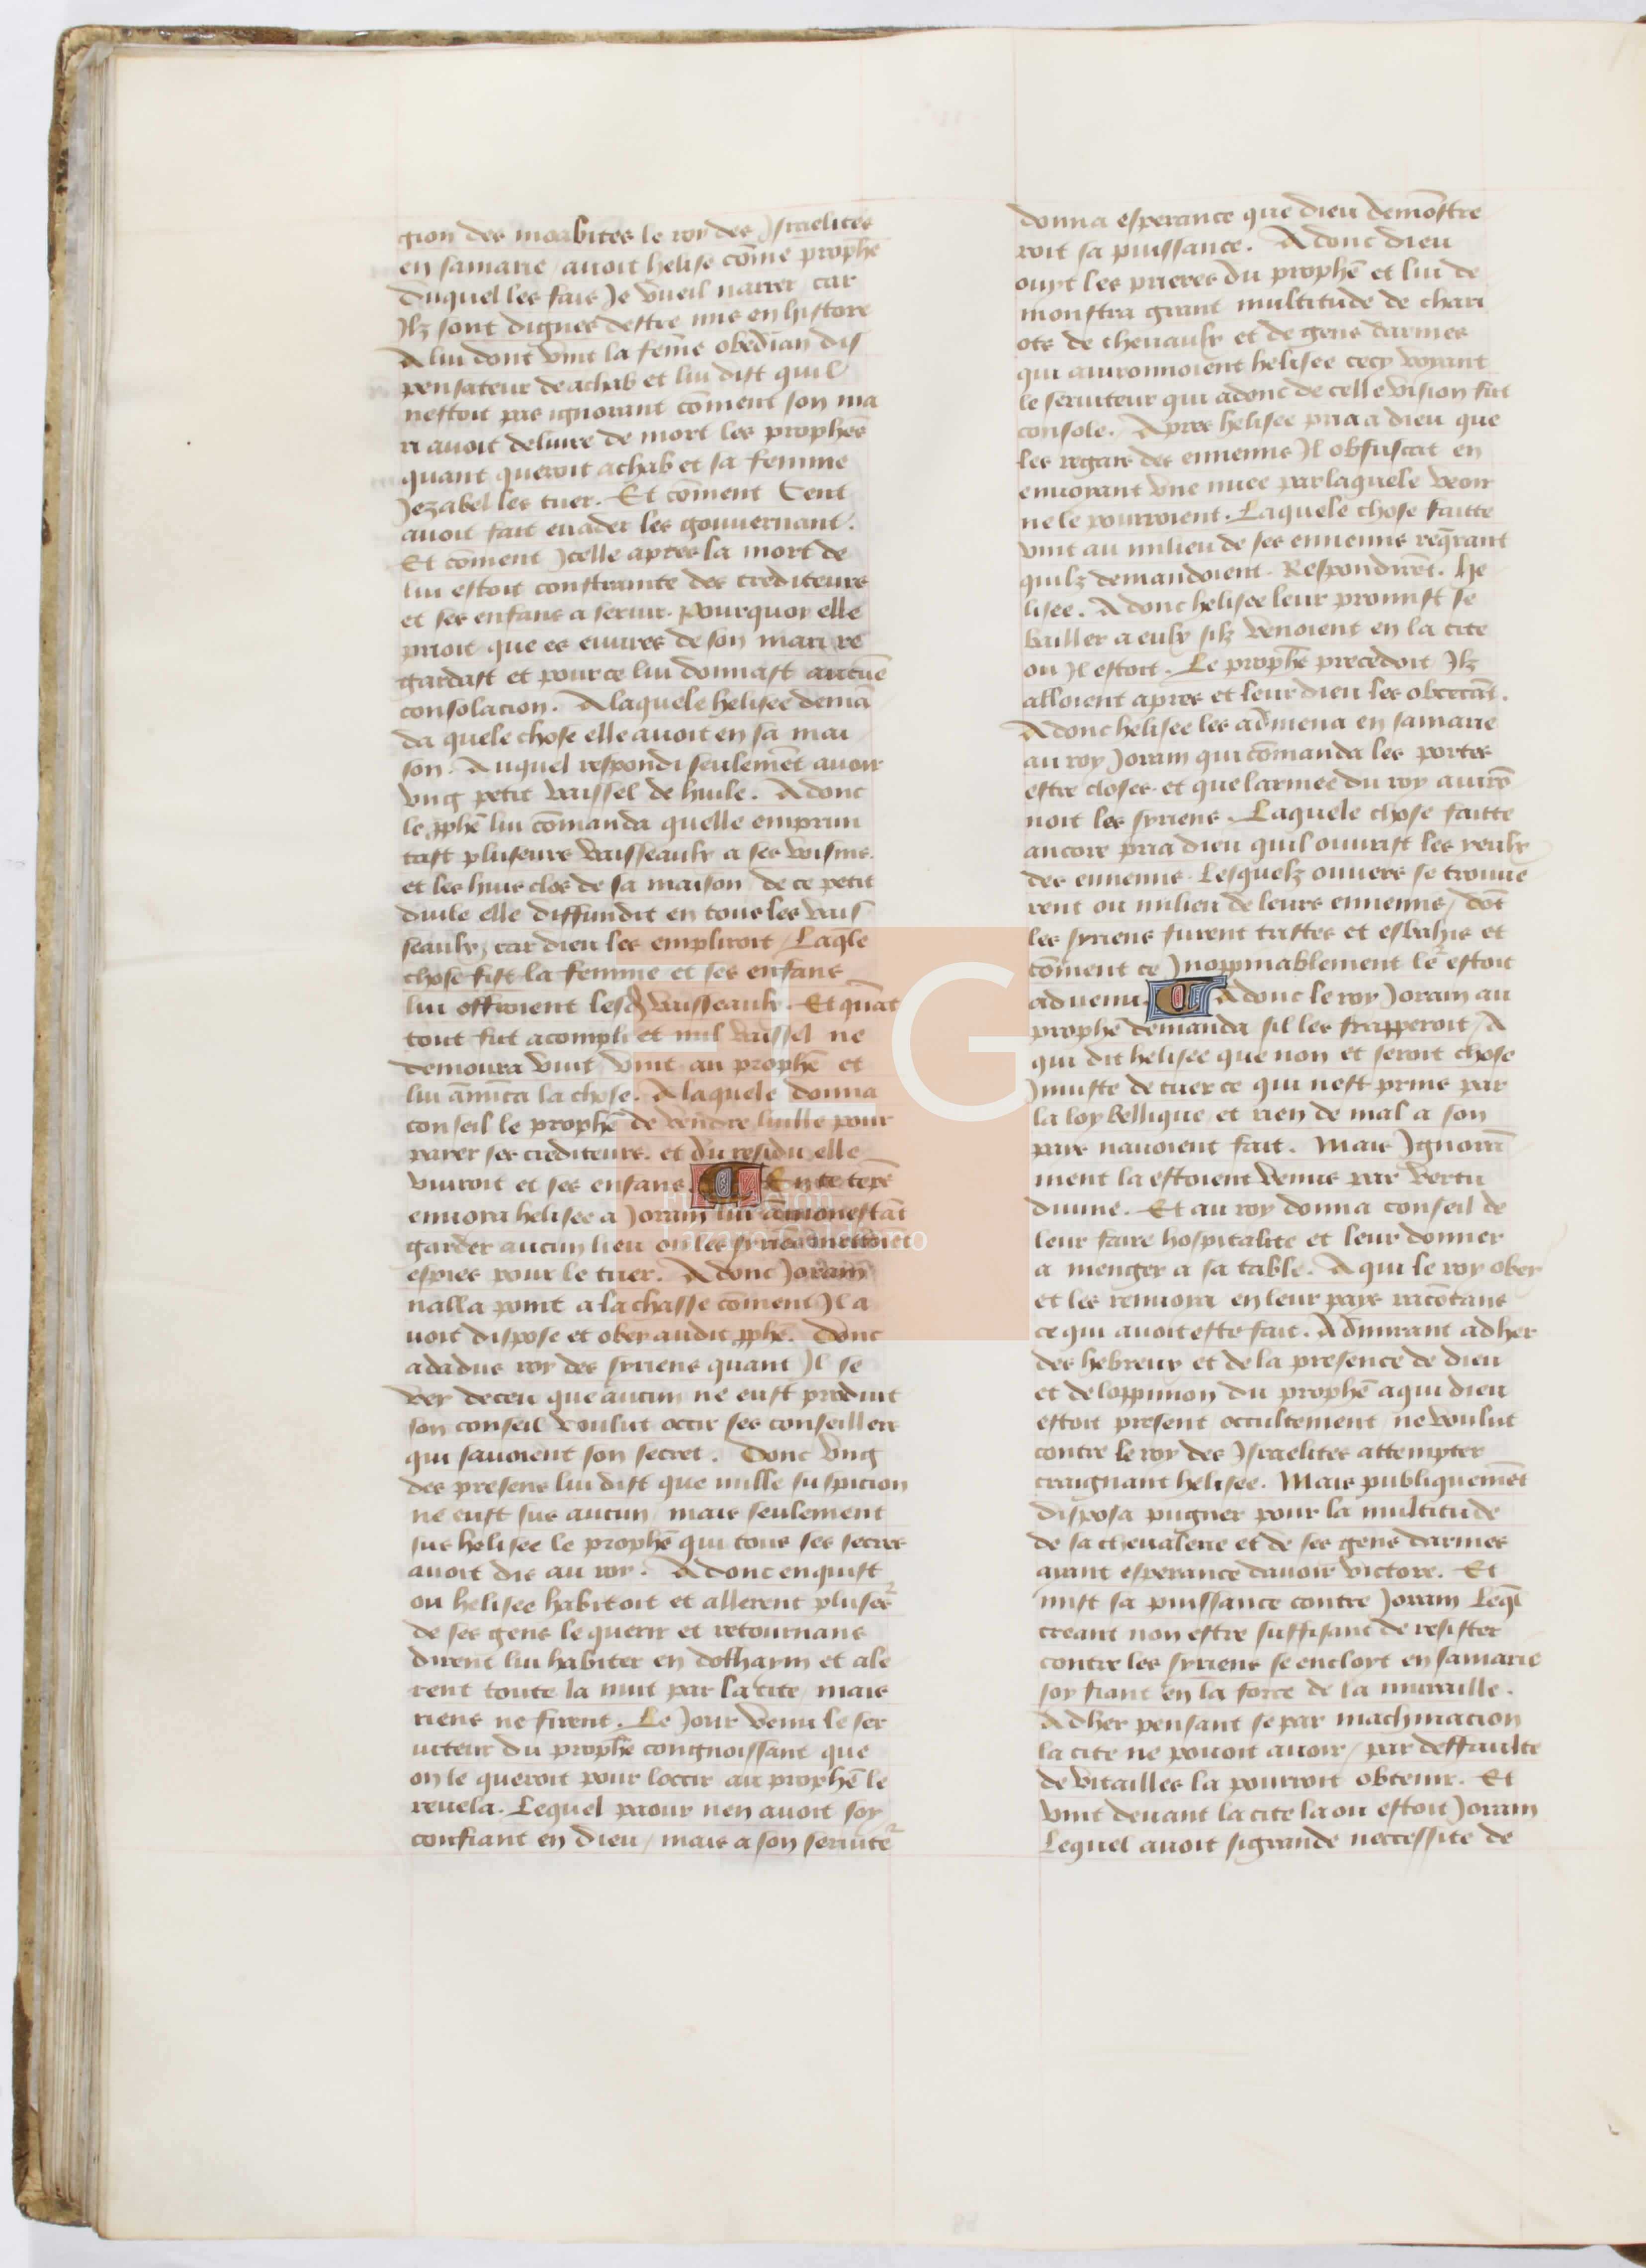 gion des moabites le roy des Israelites
en samarie / auoit helise cōme prophē
duquel les fais Je vueil narrer car
Ilz sont dignes destre mis en histore
A lui dont vint la fēme obedian dis
pensateur de achab et lui dist quil
nestoit pas ignorant cōment son ma
ri auoit deliure de mort les prophēs
quant queroit achab et sa femme
Jezabel les tuer. Et cōment Cent
auoit fait euader les gouuernant.
Et cōment Jcelle apres la mort de
lui estoit constrainte des crediteurs
et ses enfans a seruir. pourquoy elle
prioit que es euures de son mari re
gardast et pource lui donnast aucūe
consolacion. A laquele helisee demā
da quele chose elle auoit en sa mai
son. Auquel respondi seulemēt auoir
vng petit vaissel de huile. Adonc
le pphē lui cōmanda quelle emprun
tast pluseurs vaisseaulx a ses voisins.
et les huis clos de sa maison de ce petit
duile elle diffundit en tous les vais
seaulx, car dieu les empliroit / Laqle
chose fist la femme et ses enfans
lui offroient lesd vaisseaulx. Et quāt
tout fut acompli et nul vaissel ne
demoura vuit / vint au prophē et
lui ānūca la chose. A laquele donna
conseil le prophē de vendre luille pour
paier ses crediteurs. et du residu elle
viuroit et ses enfans. En ce tēps
enuoia helisee a Joram lui āmonestāt
garder aucun lieu ou les syriēs mettoiēt
espies pour le tuer. Adonc Joram
nalla point a la chasse cōment Il a
uoit dispose et obey audit pphē. Donc
adadus roy des syriens quant Il se
vey deceu que aucun ne eust produit
son conseil voulut occir ses conseillers
qui sauoient son secret. Donc vng
des presens lui dist que nulle suspicion
ne eust sus aucun / mais seulement
sus helisee le prophē qui tous ses secres
auoit dis au roy. Adonc enquist
ou helisee habitoit et allerent plusrs
de ses gens le querir et retournans
dirent lui habiter en dothaym et ale
rent toute la nuit par la cite / mais
riens ne firent. Le Jour venu le ser
uiteur du prophē congnoissant que
on le queroit pour loccir au prophē le
reuela. Lequel paour nen auoit soy
confiant en dieu / mais a son seruite
donna esperance que dieu demōstre
roit sa puissance. Adonc dieu
ouyt les prieres du prophē et lui de
monstra grant multitude de chari
ots de cheuaulx et de gens darmes
qui auironnoient helisee cecy voyant
le seruiteur qui adonc de celle vision fut
console. Apres helisee pria a dieu que
les regars des ennemis Il obfuscat en
enuoiant vne nuee par laquele veoir
ne le pourroient. Laquele chose faitte
vint au milieu de ses ennemis reqrant
quilz demandoient. Respondirēt. He
lisee. Adonc helisee leur promist se
bailler a eulx silz venoient en la cite
ou Il estoit. Le prophē precedoit Ilz
alloient apres et leur dieu les obcecāt.
Adonc helisee les admena en samarie
au roy Joram qui cōmanda les portes
estre closes. et que larmee du roy auirō
noit les syriens. Laquele chose faitte
ancore pria dieu quil ouurist les yeulx
des ennemis. Lesquelz ouuers se trouue
rent ou milieu de leurs ennemis / dōt
les syriens furent tristes et esbahis et
cōment ce Inoppinablement le estoit
aduenu. Adonc le roy Joram au
prophē demanda sil les frapperoit / A
qui dit helisee que non et seroit chose
Iniuste de tuer ce qui nest prins par
la loy bellique et rien de mal a son
pays nauoient fait. Mais Ignorā
ment la estoient venus par vertu
diuine. Et au roy donna conseil de
leur faire hospitalite et leur donner
a menger a sa table. A qui le roy obey
et les renuoya en leur pays racōtans
ce qui auoit este fait. Admirant adher
des hebreux et de la presence de dieu
et de loppinion du prophē a qui dieu
estoit present occultement ne voulut
contre le roy des Israelites attempter
craignant helisee. Mais publiquemēt
disposa pugner pour la multitude
de sa cheualerie et de ses gens darmes
aiant esperance dauoir victore. Et
mist sa puissance contre Joram Leql
creant non estre suffisant de resister
contre les syriens se encloyt en samarie
soy fiant en la force de la muraille.
Adher pensant se par machinacion
la cite ne pouoit auoir / par deffaulte
de vitailles la pourroit obtenir. Et
vint deuant la cite la ou estoit Joram
Lequel auoit sigrande neccessite de